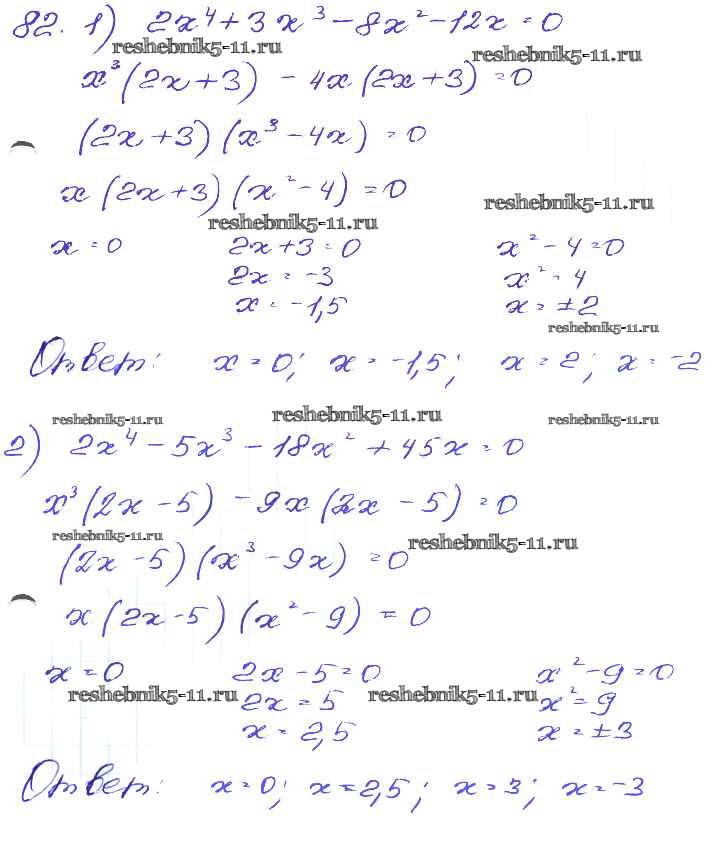 82. 1) 2x⁴ + 3x³ - 8x² - 12x = 0
reshebnik5-11.ru reshebnik5-11.ru
x³(2x+3) - 4x(2x+3) = 0
(2x+3)(x³ - 4x) = 0
x(2x+3)(x² - 4) = 0
reshebnik5-11.ru
reshebnik5-11.ru
x = 0 2x+3 = 0 x² - 4 = 0
2x = -3 x² = 4
x = -1,5 x = ±2
reshebnik5-11.ru
Ответ: x = 0; x = -1,5; x = 2; x = -2
reshebnik5-11.ru reshebnik5-11.ru reshebnik5-11.ru
2) 2x⁴ - 5x³ - 18x² + 45x = 0
x³(2x - 5) - 9x(2x - 5) = 0
reshebnik5-11.ru reshebnik5-11.ru
(2x - 5)(x³ - 9x) = 0
x(2x - 5)(x² - 9) = 0
x = 0 2x - 5 = 0 x² - 9 = 0
reshebnik5-11.ru reshebnik5-11.ru
2x = 5 x² = 9
x = 2,5 x = ±3
Ответ: x = 0; x = 2,5; x = 3; x = -3